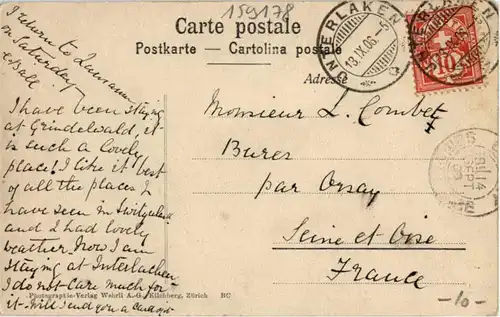 159178
Carte postale
Postkarte – Cartolina postale
Adresse
INTERLAKEN
13.IX.06.-5
INTERLAKEN
10
I return to Lausanne
on Saturday
I have been staying
at Grindelwald, it
is such a lovely
place! I like it best
of all the places I
have seen in Switzerland
and I had lovely
weather. Now I am
staying at Interlachen
I do not care much for
it. Will send you a card of it
Monsieur L. Combet
Bures
par Orsay
Seine et Oise
France
14
SEPT
Photographie-Verlag Wehrli A.-G., Kilchberg, Zürich BC
-10-